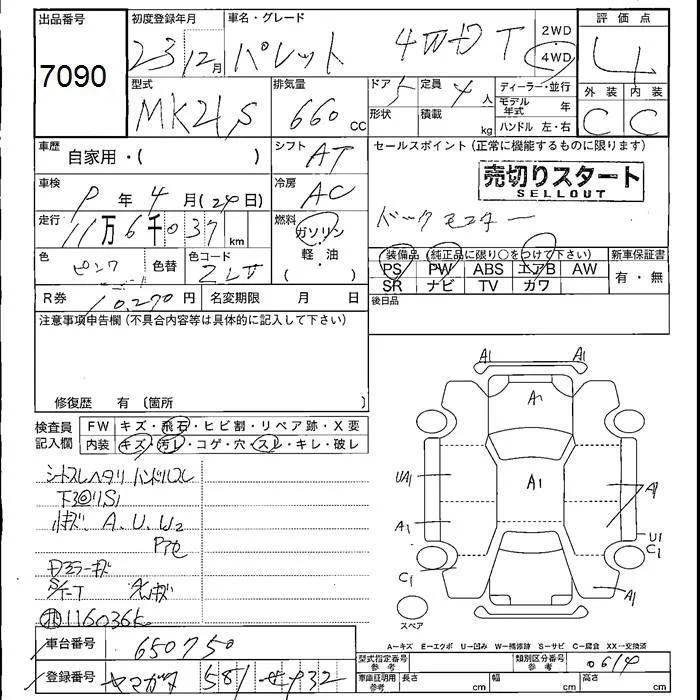 出品番号 初度登録年月 車名・グレード 2WD 評価点
7090 23 12月 パレット 4WD T 4WD 4
型式 排気量 ドア 5 定員 4人 ディーラー・並行 外装 内装
MK21S 660cc 形状 積載 kg モデル年式 年 C C
ハンドル 左・右
車歴 自家用・( ) シフト AT セールスポイント(正常に機能するものに限ります)
売切りスタート
SELLOUT
車検 P年4月(24日) 冷房 AC
走行 11万6千037km 燃料 ガソリン バックモニター
軽・油
( )
色 ピンク 色替 色コード 装備品(純正品に限り○をつけて下さい) 新車保証書
PS PW ABS エアB AW 有・無
SR ナビ TV カワ
R券 10,270円 名変期限 月 日 後日品
注意事項申告欄(不具合内容等は具体的に記入して下さい)
修復歴 有 〔箇所 〕
検査員記入欄 FW キズ・飛石・ヒビ割・リペア跡・X要
内装 キズ・汚レ・コゲ・穴・スレ・キレ・破レ
シートスレヘタリ ハンドルスレ
下廻りS1
小キズ. A. U. W2
Dミラーキズ
116036k
A1 A1
A1
UA1 A1 A1
A1 U1
C1
C1
A1
スペア
A-キズ E-エクボ U-凹み W-補修跡 S-サビ C-腐食 XX-交換済
車台番号 650750
型式指定番号 参考 類別区分番号 参考 0614
登録番号 ヤマガタ 581 932
車庫証明用 参考 長さ cm 幅 cm 高さ cm